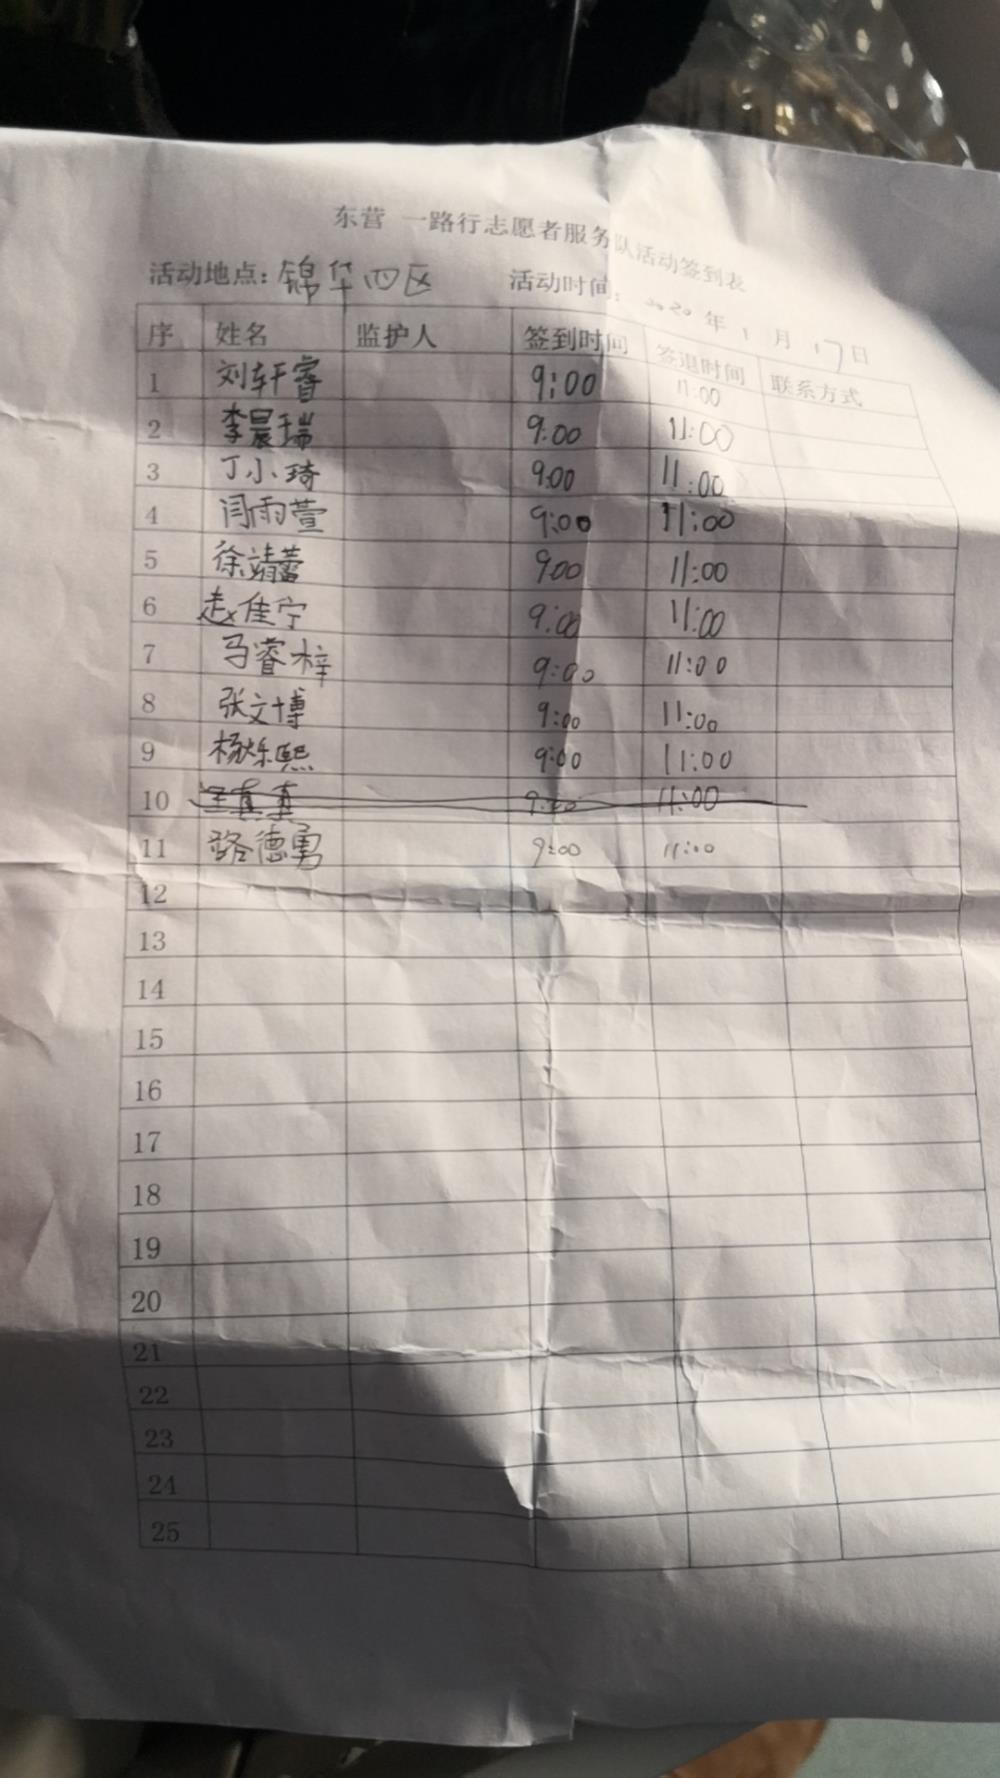 东营 一路行志愿者服务队活动签到表
活动地点：锦华四区 活动时间：2020年1月17日
序 姓名 监护人 签到时间 签退时间 联系方式
1 刘轩睿 9:00 11:00
2 李晨瑞 9:00 11:00
3 丁小琦 9:00 11:00
4 闫雨萱 9:00 11:00
5 徐靖蕾 9:00 11:00
6 赵佳宁 9:00 11:00
7 马睿梓 9:00 11:00
8 张文博 9:00 11:00
9 杨烁熙 9:00 11:00
10 9:00 11:00
11 路德勇 9:00 11:00
12
13
14
15
16
17
18
19
20
21
22
23
24
25